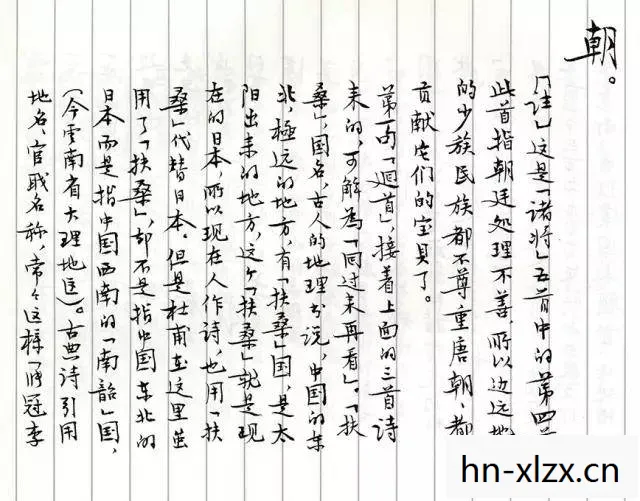 朝。
「註」这是「诸将」五首中的第四首
此首指朝廷处理不善，所以边远地
的少族民族都不尊重唐朝，都
贡献它们的宝貝了。
第一句「迴首，接着上面的三首诗
来的，可解為「回过来再看」。「扶
桑」，国名，古人的地理书说，中国的东
北，極远的地方，有「扶桑」国，是太
阳出来的地方，这个「扶桑」就是现
在的日本，所以现在人作诗，也用「扶
桑」代替日本。但是杜甫在这里虽
用了「扶桑」，却不是指中国东北的
日本而是指中国西南的「南韶」国，
（今雲南省大理地区）。古典诗引用
地名、官職名称，常々这样「張冠李
hn-xlzx.cn